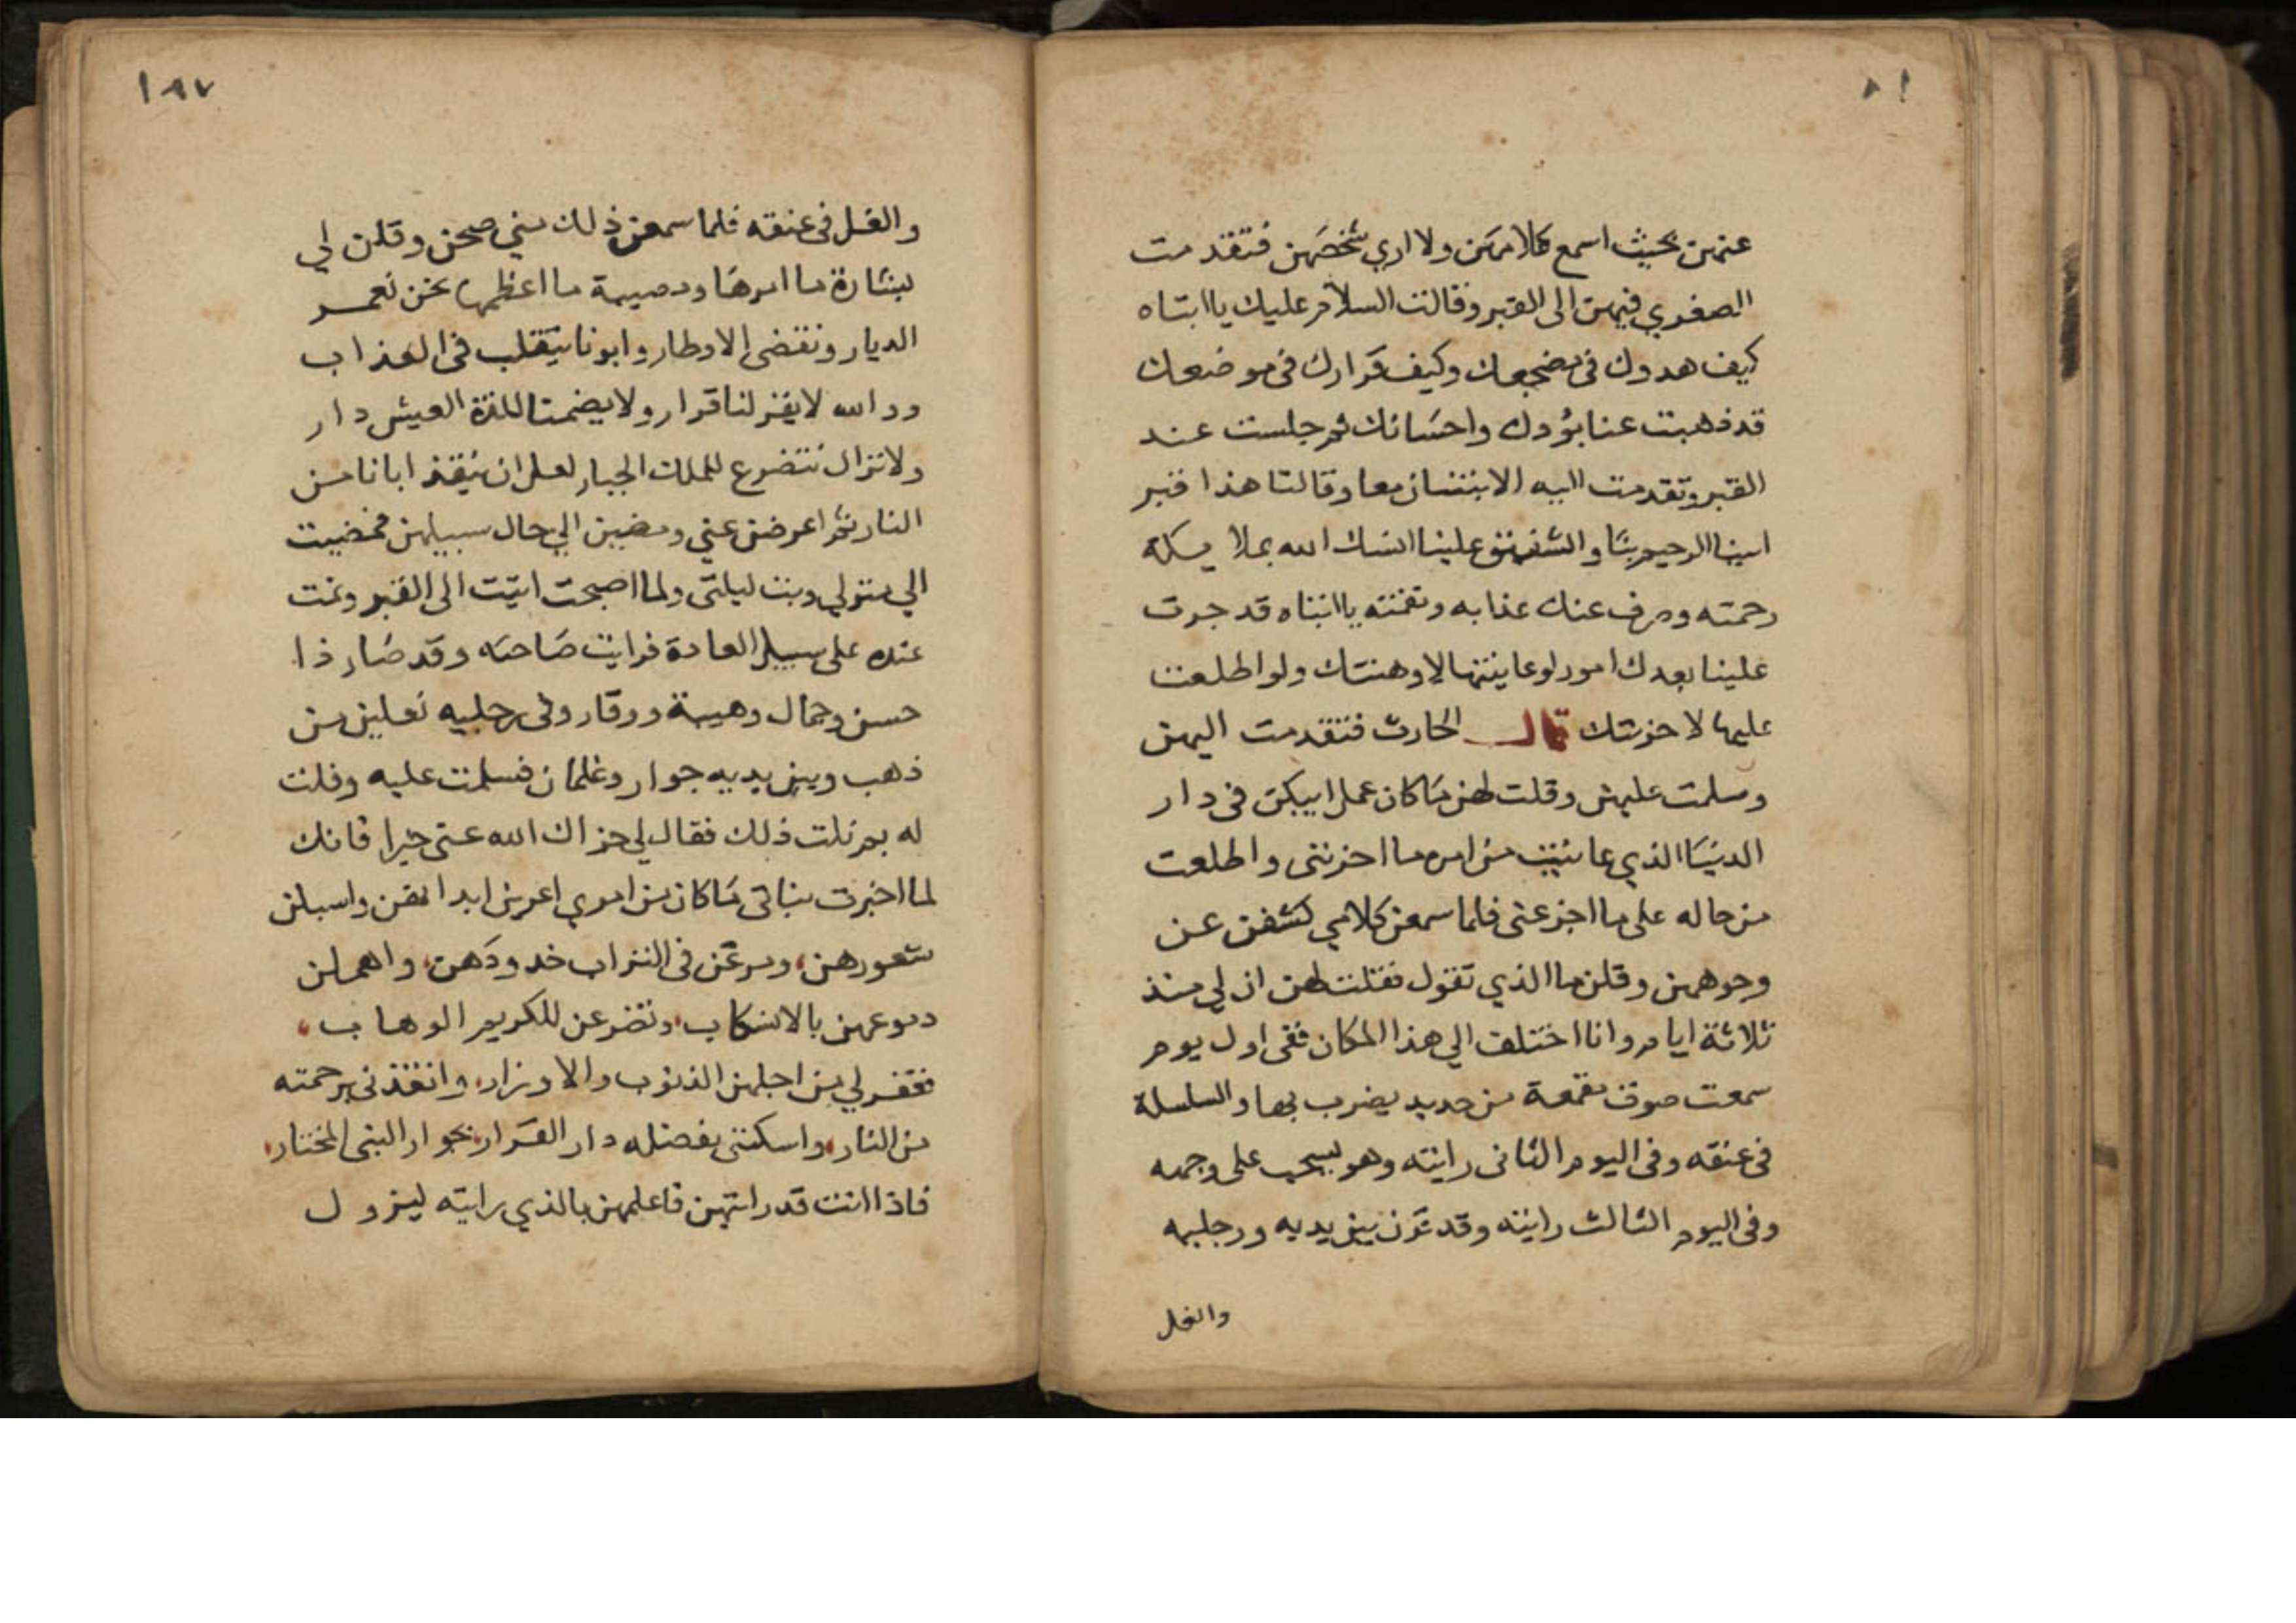 ٨١
عنهن بحيث اسمع كلامهن ولا اري شخصهن فتقدمت
الصغري فيهن الى القبر وقالت السلام عليك يا ابتاه
كيف هدوك في مضجعك وكيف قرارك في موضعك
قد ذهبت عنا بودك واحسانك ثم جلست عند
القبر وتقدمت اليه الابنتان معا وقالتا هذا قبر
ابينا الرحيم بنا و علينا الله
رحمته وصرف عنك عذابه ونقمته يا ابتاه قد جرت
علينا بعدك امور لو عاينتها لاوهنتك ولو اطلعت
عليها لاحزنتك قال الحارث فتقدمت اليهن
وسلمت عليهن وقلت لهن ما كان عمل ابيكن في دار
الدنيا الذي عاينت من امره ما احزنني واطلعت
من حاله على ما اجزعني فلما سمعن كلامي كشفن عن
وجوههن وقلن ما الذي تقول فقلت لهن ان لي منذ
ثلاثة ايام وانا اختلف الي هذا المكان ففي اول يوم
سمعت صوت مقمعة من حديد يضرب بها والسلسلة
في عنقه وفي اليوم الثاني رايته وهو يسحب على وجهه
وفي اليوم الثالث رايته وقد قرن بين يديه ورجليه
والغل
١٨٧
والغل في عنقه فلما سمعن ذلك مني صحن وقلن لي
بشارة ما امرها ومصيبة ما اعظمها نحن نعمر
الديار ونقضى الاوطار وابونا يتقلب في العذاب
والله لا يقر لنا قرار ولا يضمنا للذة العيش دار
ولا نزال نتضرع للملك الجبار لعل ان ينقذ ابانا من
النار ثم اعرضن عني ومضين الي حال سبيلهن فمضيت
الي منزلي وبت ليلتى ولما اصبحت اتيت الى القبر ونمت
عنده على سبيل العادة فرايت صاحبه وقد صار ذا
حسن وجمال وهيبة ووقار وفى رجليه نعلين من
ذهب وبين يديه جوار وغلمان فسلمت عليه وقلت
له بم نلت ذلك فقال لي جزاك الله عنى خيرا فانك
لما اخبرت بناتى ما كان من امري واسبلن
شعورهن، ومرغن في التراب خدودهن، واهملن
دموعهن بالانسكاب، وتضرعن للكريم الوهاب،
فغفر لي من اجلهن الذنوب والاوزار، وانقذنى برحمته
من النار، واسكننى بفضله دار القرار، بجوار النبى المختار،
فاذا انت قد رايتهن فاعلمهن بالذي رايته ليزول